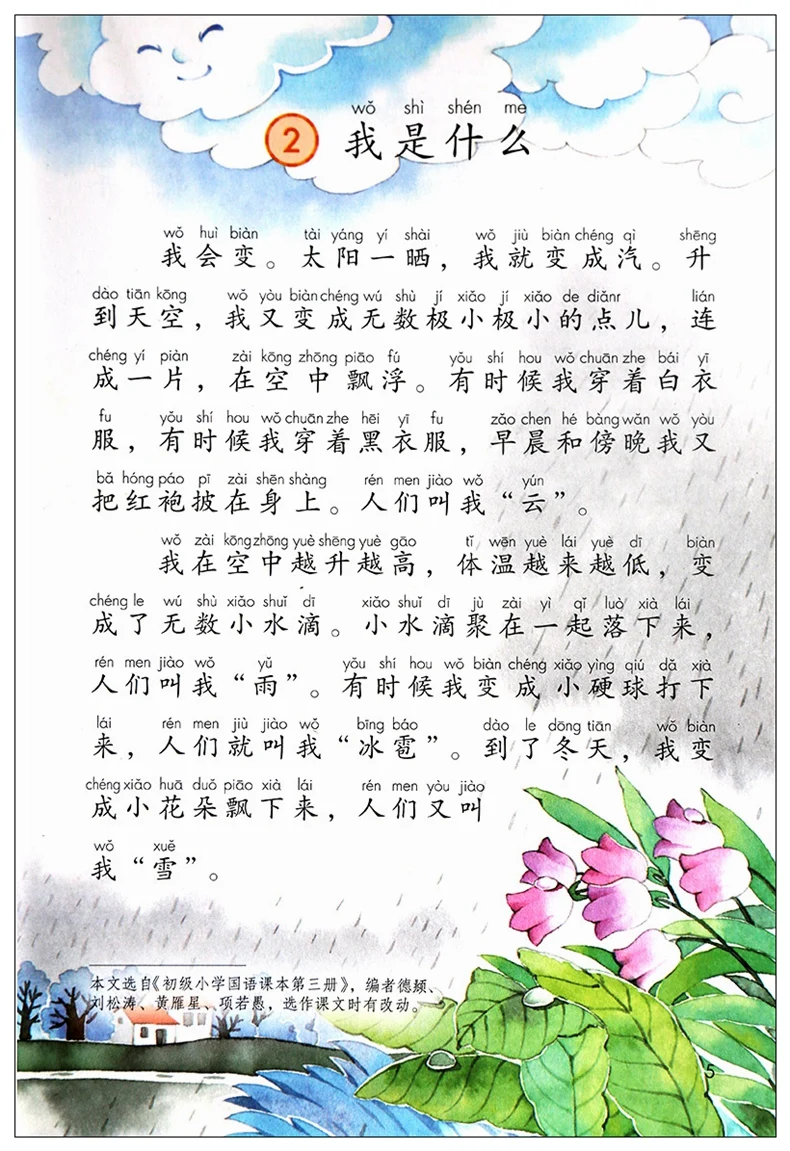 wǒ shì shén me
2 我是什么
wǒ huì biàn tài yáng yí shài wǒ jiù biàn chéng qì shēng
我会变。太阳一晒，我就变成汽。升
dào tiān kōng wǒ yòu biàn chéng wú shù jí xiǎo jí xiǎo de diǎnr lián
到天空，我又变成无数极小极小的点儿，连
chéng yí piàn zài kōng zhōng piāo fú yǒu shí hou wǒ chuān zhe bái yī
成一片，在空中飘浮。有时候我穿着白衣
fu yǒu shí hou wǒ chuān zhe hēi yī fu zǎo chen hé bàng wǎn wǒ yòu
服，有时候我穿着黑衣服，早晨和傍晚我又
bǎ hóng páo pī zài shēn shàng rén men jiào wǒ yún
把红袍披在身上。人们叫我“云”。
wǒ zài kōng zhōng yuè shēng yuè gāo tǐ wēn yuè lái yuè dī biàn
我在空中越升越高，体温越来越低，变
chéng le wú shù xiǎo shuǐ dī xiǎo shuǐ dī jù zài yì qǐ luò xià lái
成了无数小水滴。小水滴聚在一起落下来，
rén men jiào wǒ yǔ yǒu shí hou wǒ biàn chéng xiǎo yìng qiú dǎ xià
人们叫我“雨”。有时候我变成小硬球打下
lái rén men jiù jiào wǒ bīng báo dào le dōng tiān wǒ biàn
来，人们就叫我“冰雹”。到了冬天，我变
chéng xiǎo huā duǒ piāo xià lái rén men yòu jiào
成小花朵飘下来，人们又叫
wǒ xuě
我“雪”。
本文选自《初级小学国语课本第三册》，编者德颎、
刘松涛、黄雁星、项若愚，选作课文时有改动。
5